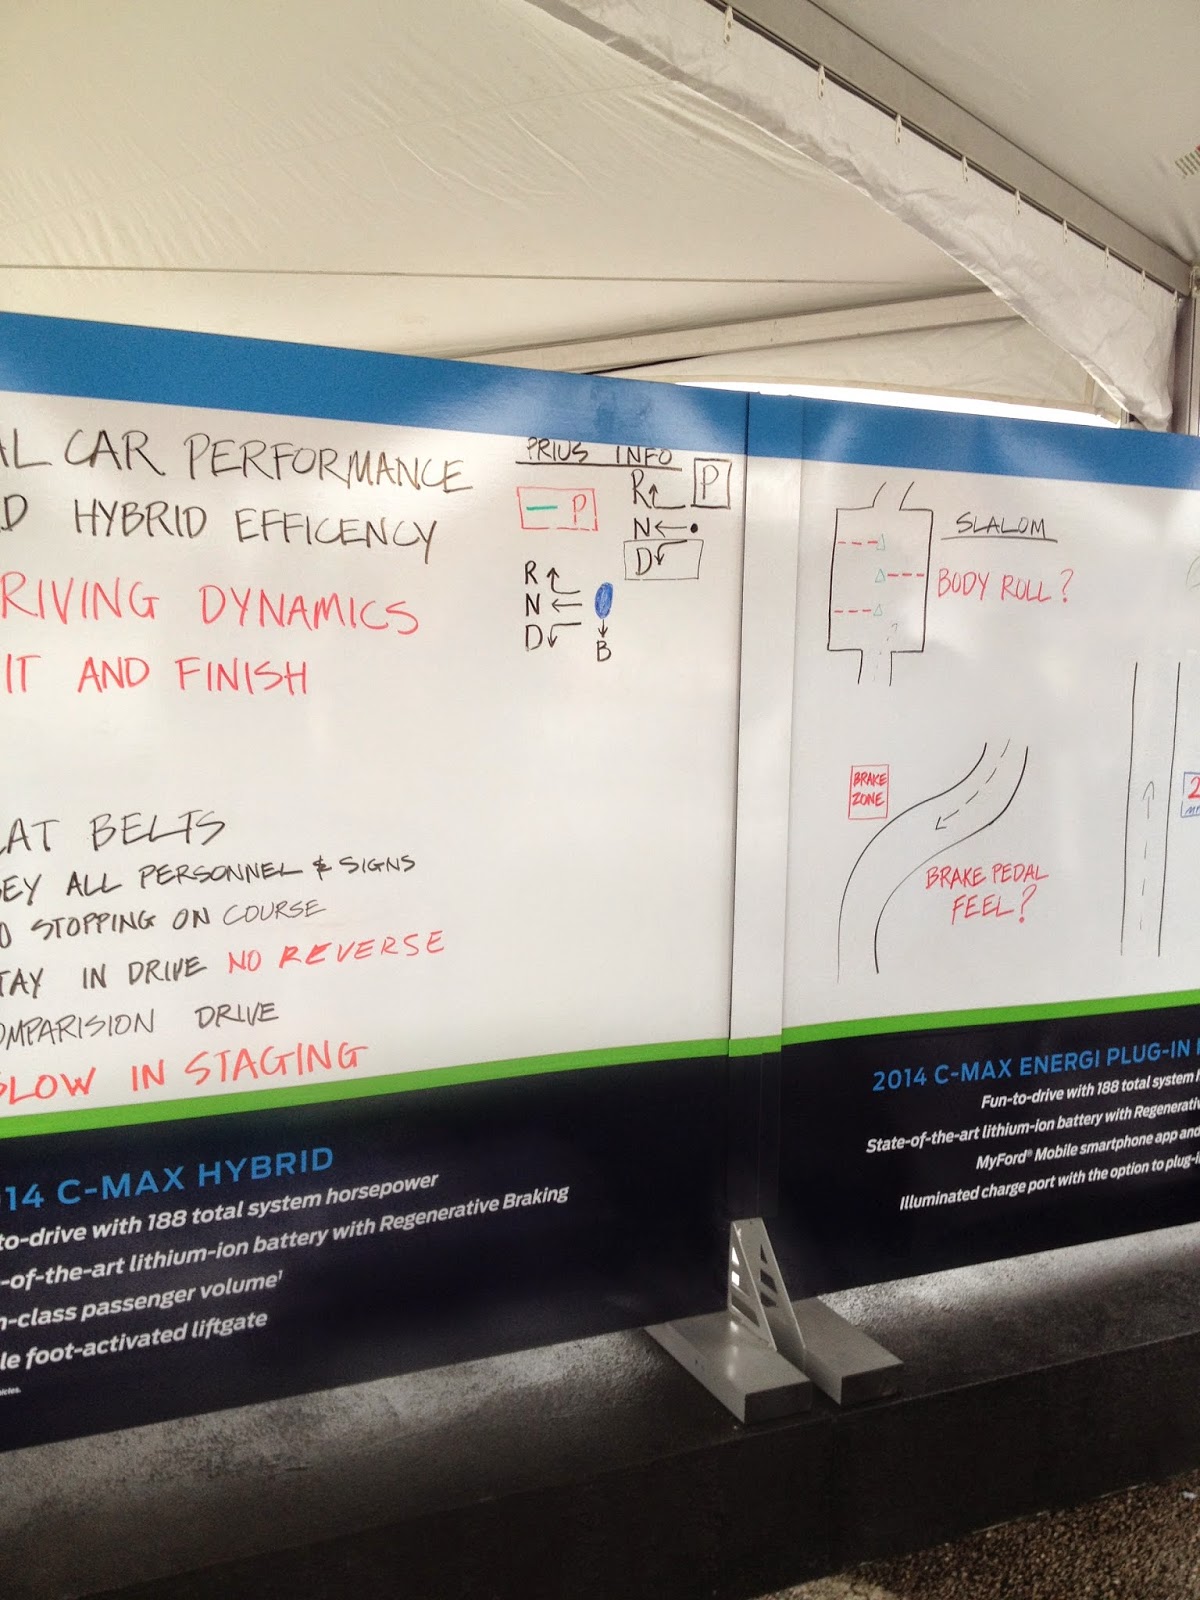 AL CAR PERFORMANCE
D HYBRID EFFICENCY
RIVING DYNAMICS
IT AND FINISH
AT BELTS
EY ALL PERSONNEL & SIGNS
O STOPPING ON COURSE
TAY IN DRIVE NO REVERSE
OMPARISION DRIVE
SLOW IN STAGING
PRIUS INFO
P
R
N
D
P
R
N
D
B
SLALOM
BODY ROLL?
BRAKE
ZONE
BRAKE PEDAL
FEEL?
2
14 C-MAX HYBRID
to-drive with 188 total system horsepower
-of-the-art lithium-ion battery with Regenerative Braking
n-class passenger volume¹
le foot-activated liftgate
hicles.
2014 C-MAX ENERGI PLUG-IN
Fun-to-drive with 188 total system h
State-of-the-art lithium-ion battery with Regenerativ
MyFord® Mobile smartphone app and
Illuminated charge port with the option to plug-i